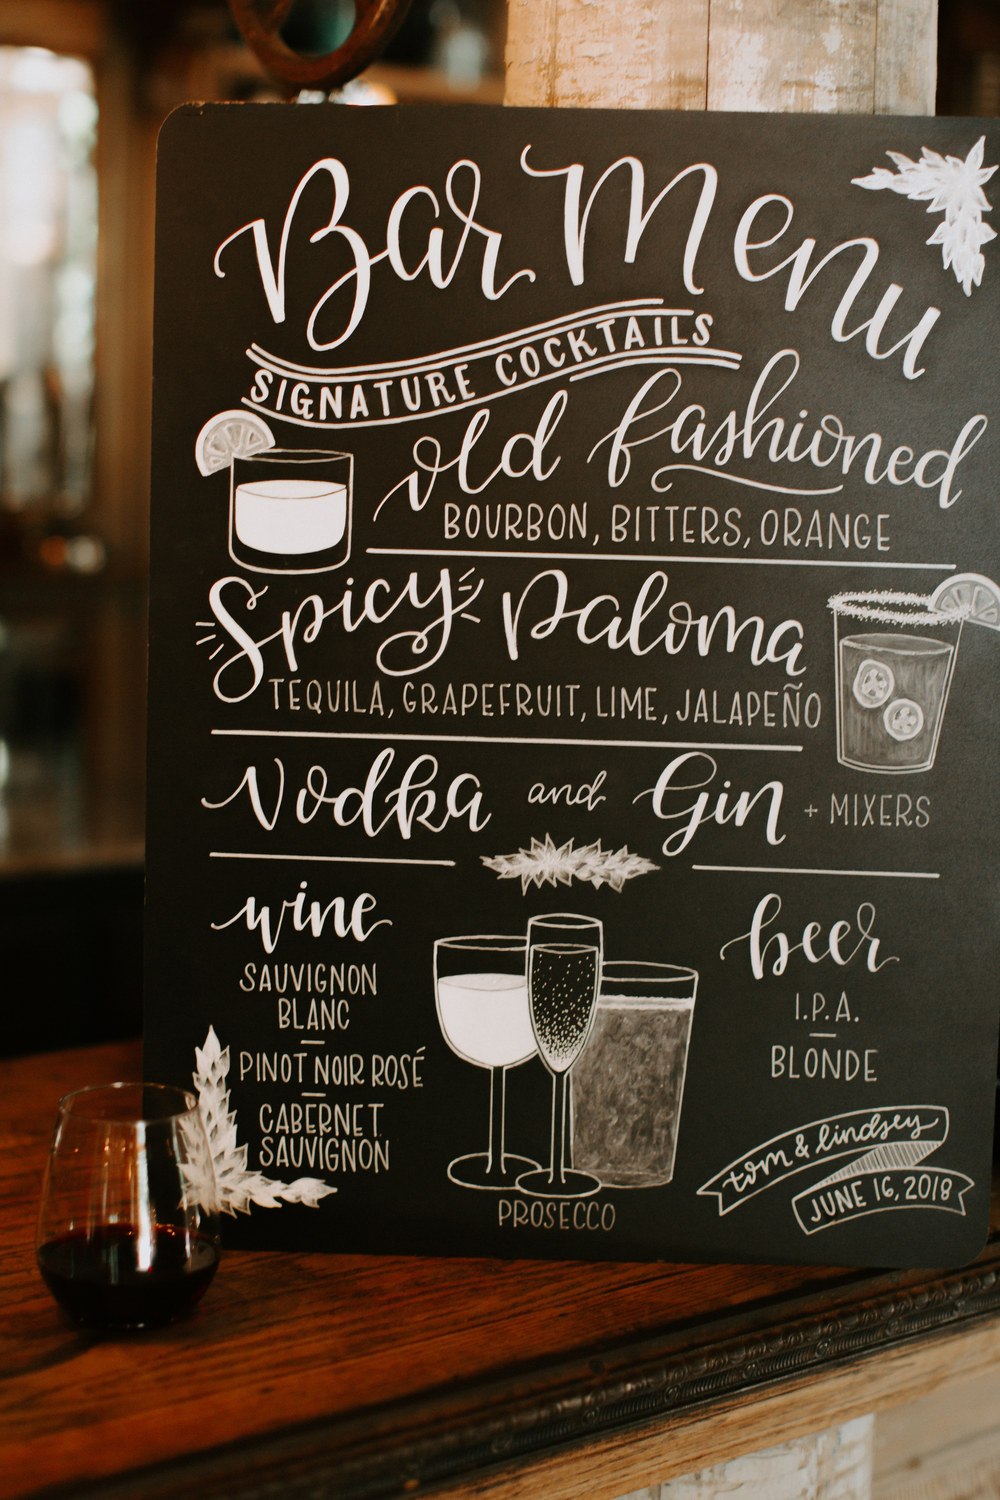 Bar Menu
SIGNATURE COCKTAILS
old fashioned
BOURBON, BITTERS, ORANGE
Spicy Paloma
TEQUILA, GRAPEFRUIT, LIME, JALAPEÑO
Vodka and Gin + MIXERS
wine
SAUVIGNON
BLANC
—
PINOT NOIR ROSÉ
—
CABERNET
SAUVIGNON
PROSECCO
beer
I.P.A.
—
BLONDE
tom & lindsey
JUNE 16, 2018